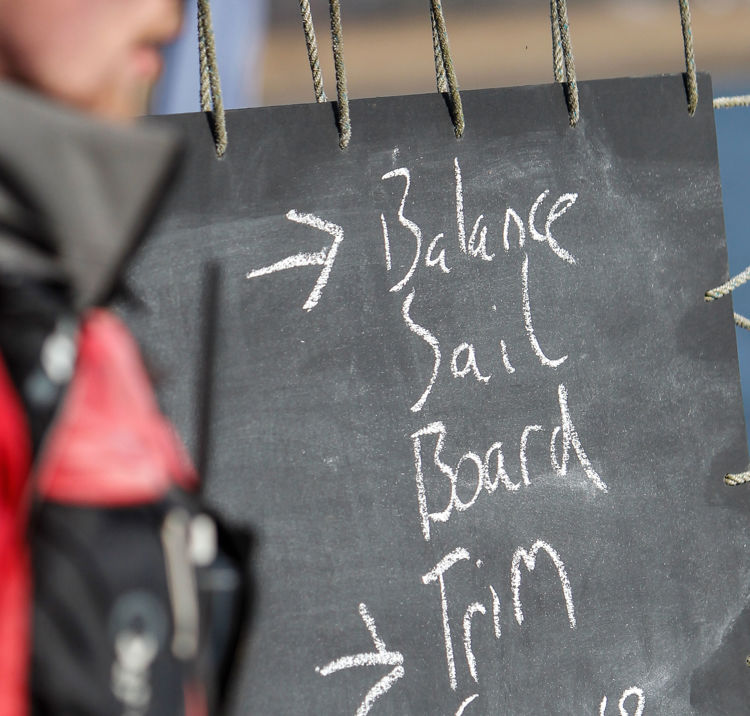 → Balance
Sail
Board
Trim